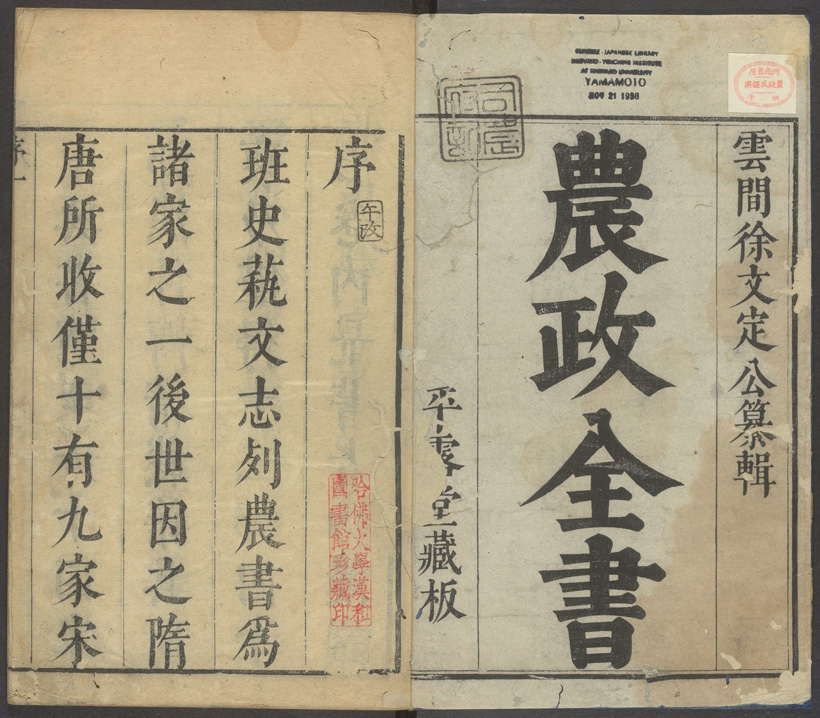 CHINESE - JAPANESE LIBRARY
HARVARD - YENCHING INSTITUTE
AT HARVARD UNIVERSITY
YAMAMOTO
NOV 21 1936
雲間徐文定公纂輯
農政全書
平露堂藏板
序
哈佛大學漢和
圖書館珍藏印
班史蓺文志列農書爲
諸家之一後世因之隋
唐所收僅十有九家宋
序一